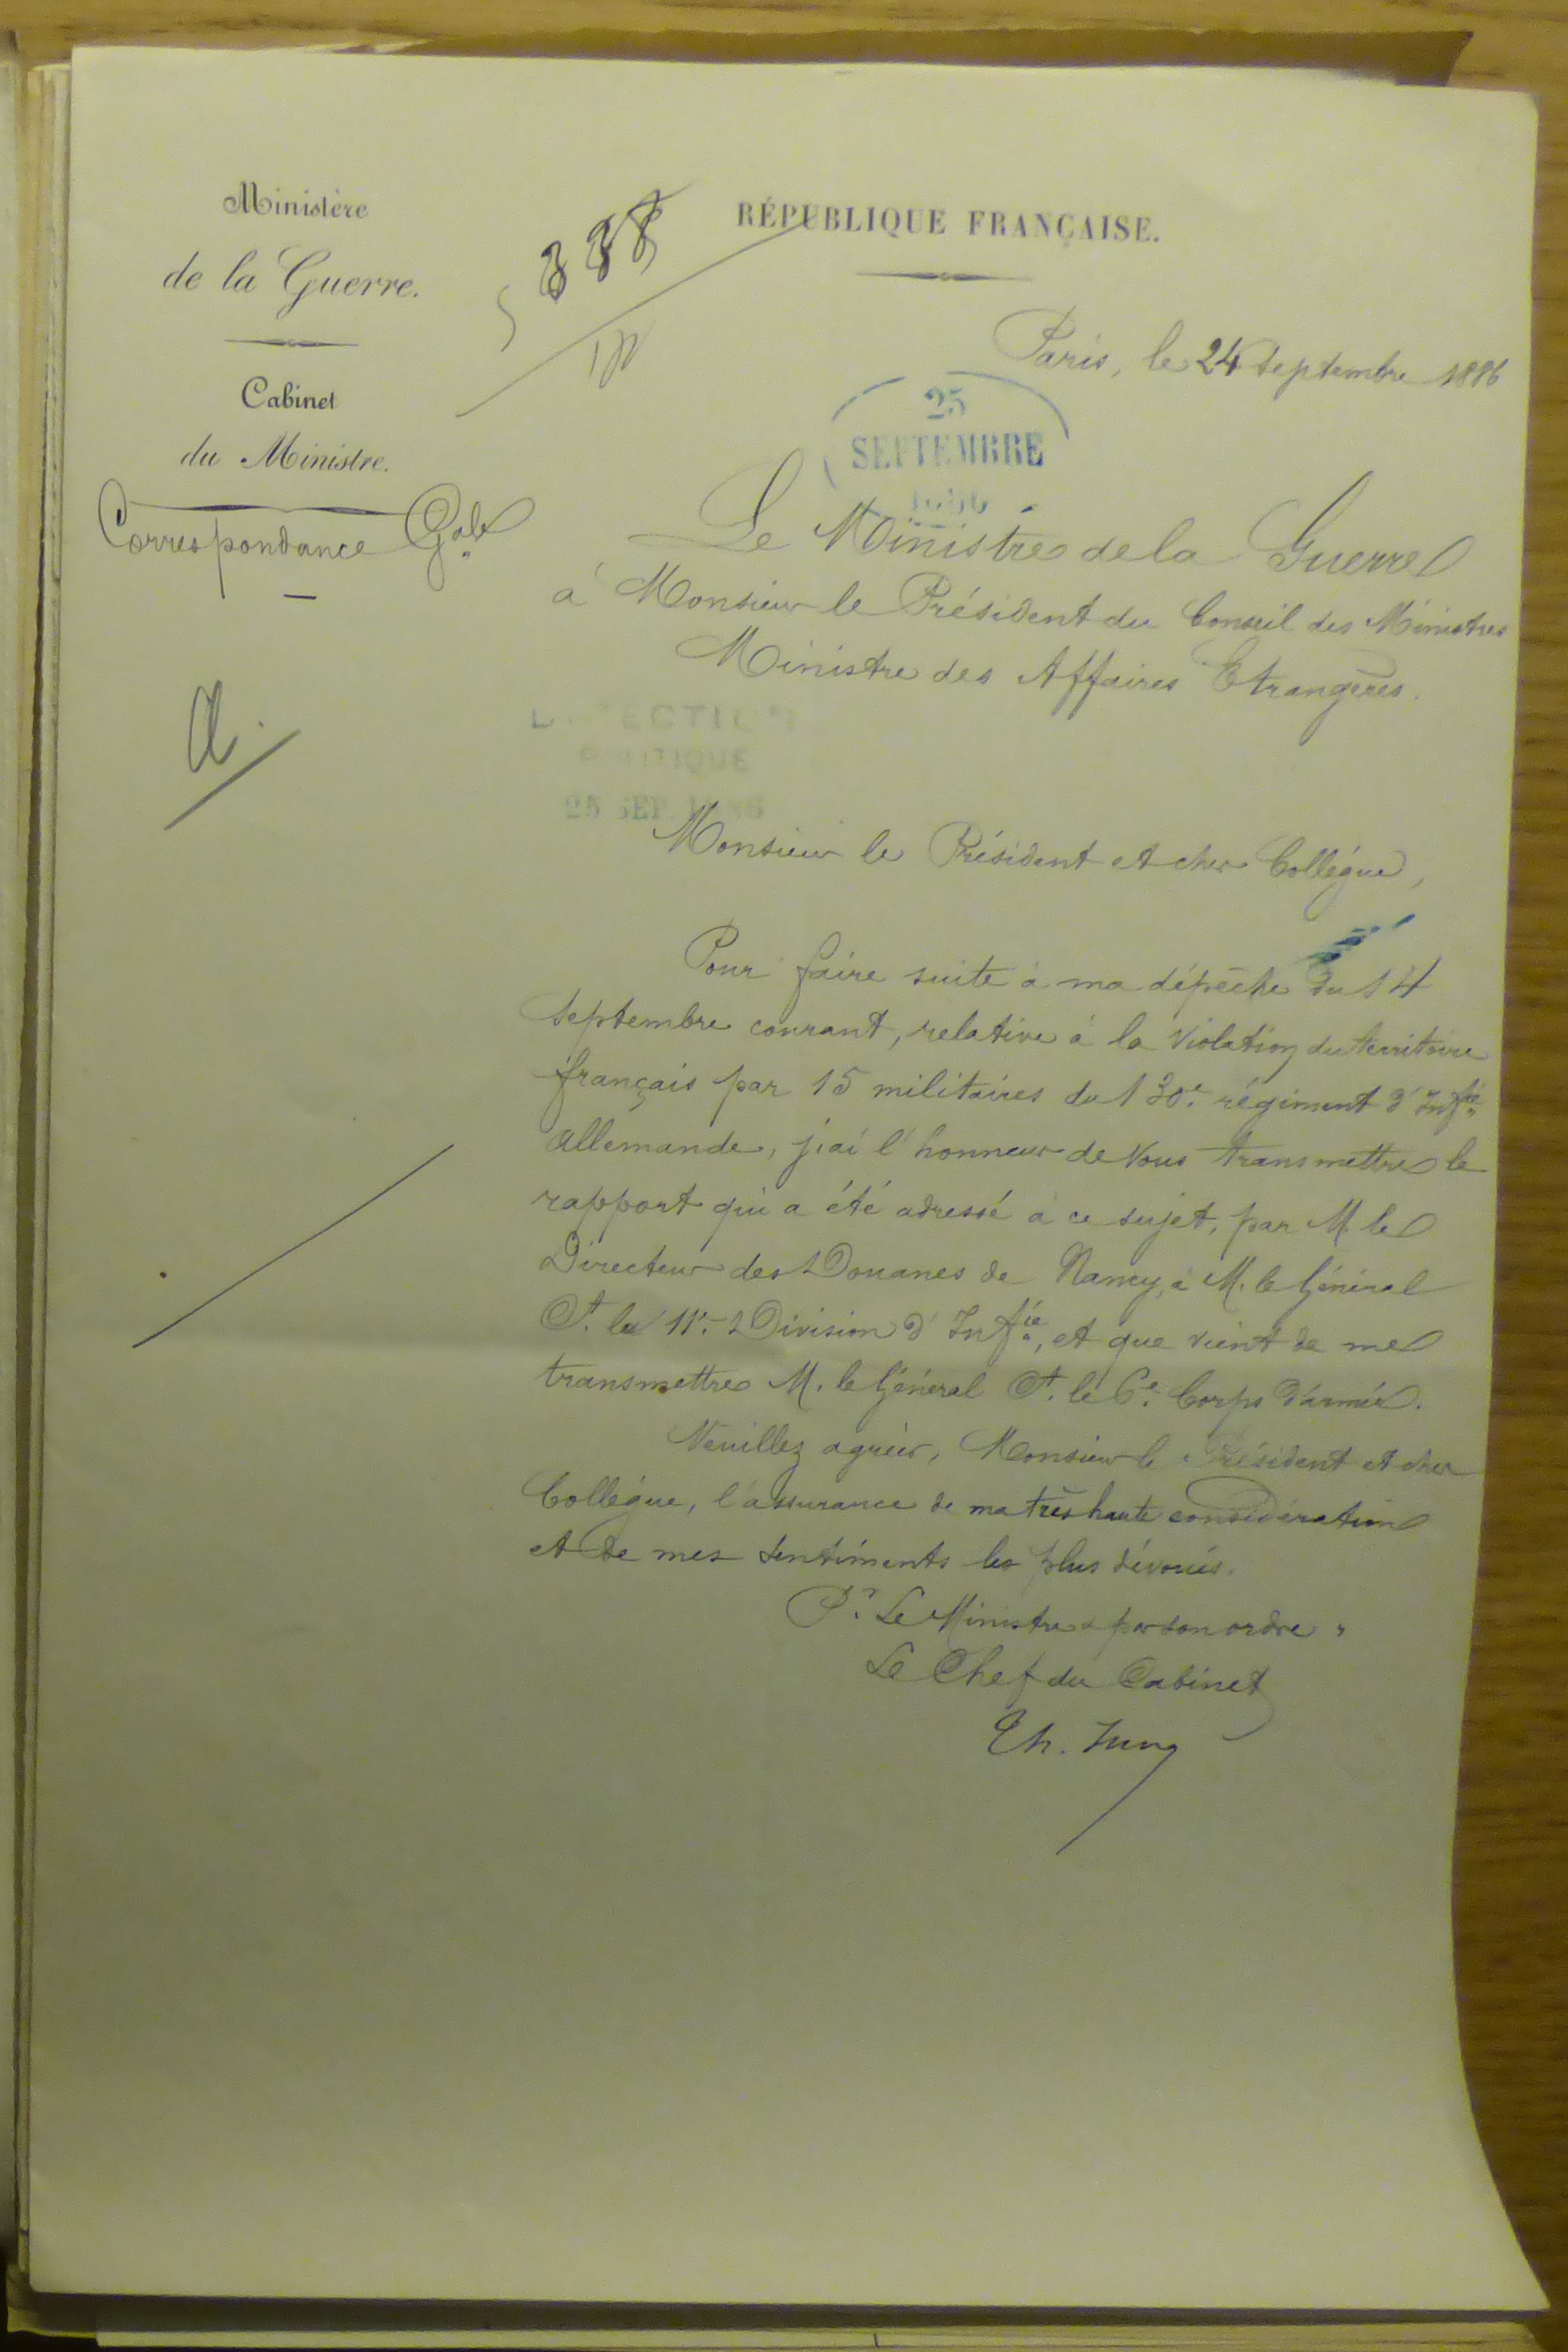 Ministère
de la Guerre.
Cabinet
du Ministre.
Correspondance Gale
RÉPUBLIQUE FRANÇAISE.
Paris, le 24 Septembre 1886
25
SEPTEMBRE
1886
Le Ministre de la Guerre
à Monsieur le Président du Conseil des Ministres
Ministre des Affaires Etrangères.
DIRECTION
POLITIQUE
25 SEP. 1886
Monsieur le Président et cher Collègue,
Pour faire suite à ma dépêche du 14
Septembre courant, relative à la violation du territoire
français par 15 militaires du 130e. régiment d'Infie
allemande, j'ai l'honneur de vous transmettre le
rapport qui a été adressé à ce sujet, par M. le
Directeur des Douanes de Nancy, à M. le Général
Ct. la 11e. Division d'Infie, et que vient de me
transmettre M. le Général Ct. le 6e. Corps d'armée.
Veuillez agréer, Monsieur le Président et cher
Collègue, l'assurance de ma très haute considération
et de mes sentiments les plus dévoués.
Pr. Le Ministre & par son ordre,
Le Chef du Cabinet
Th. Iung